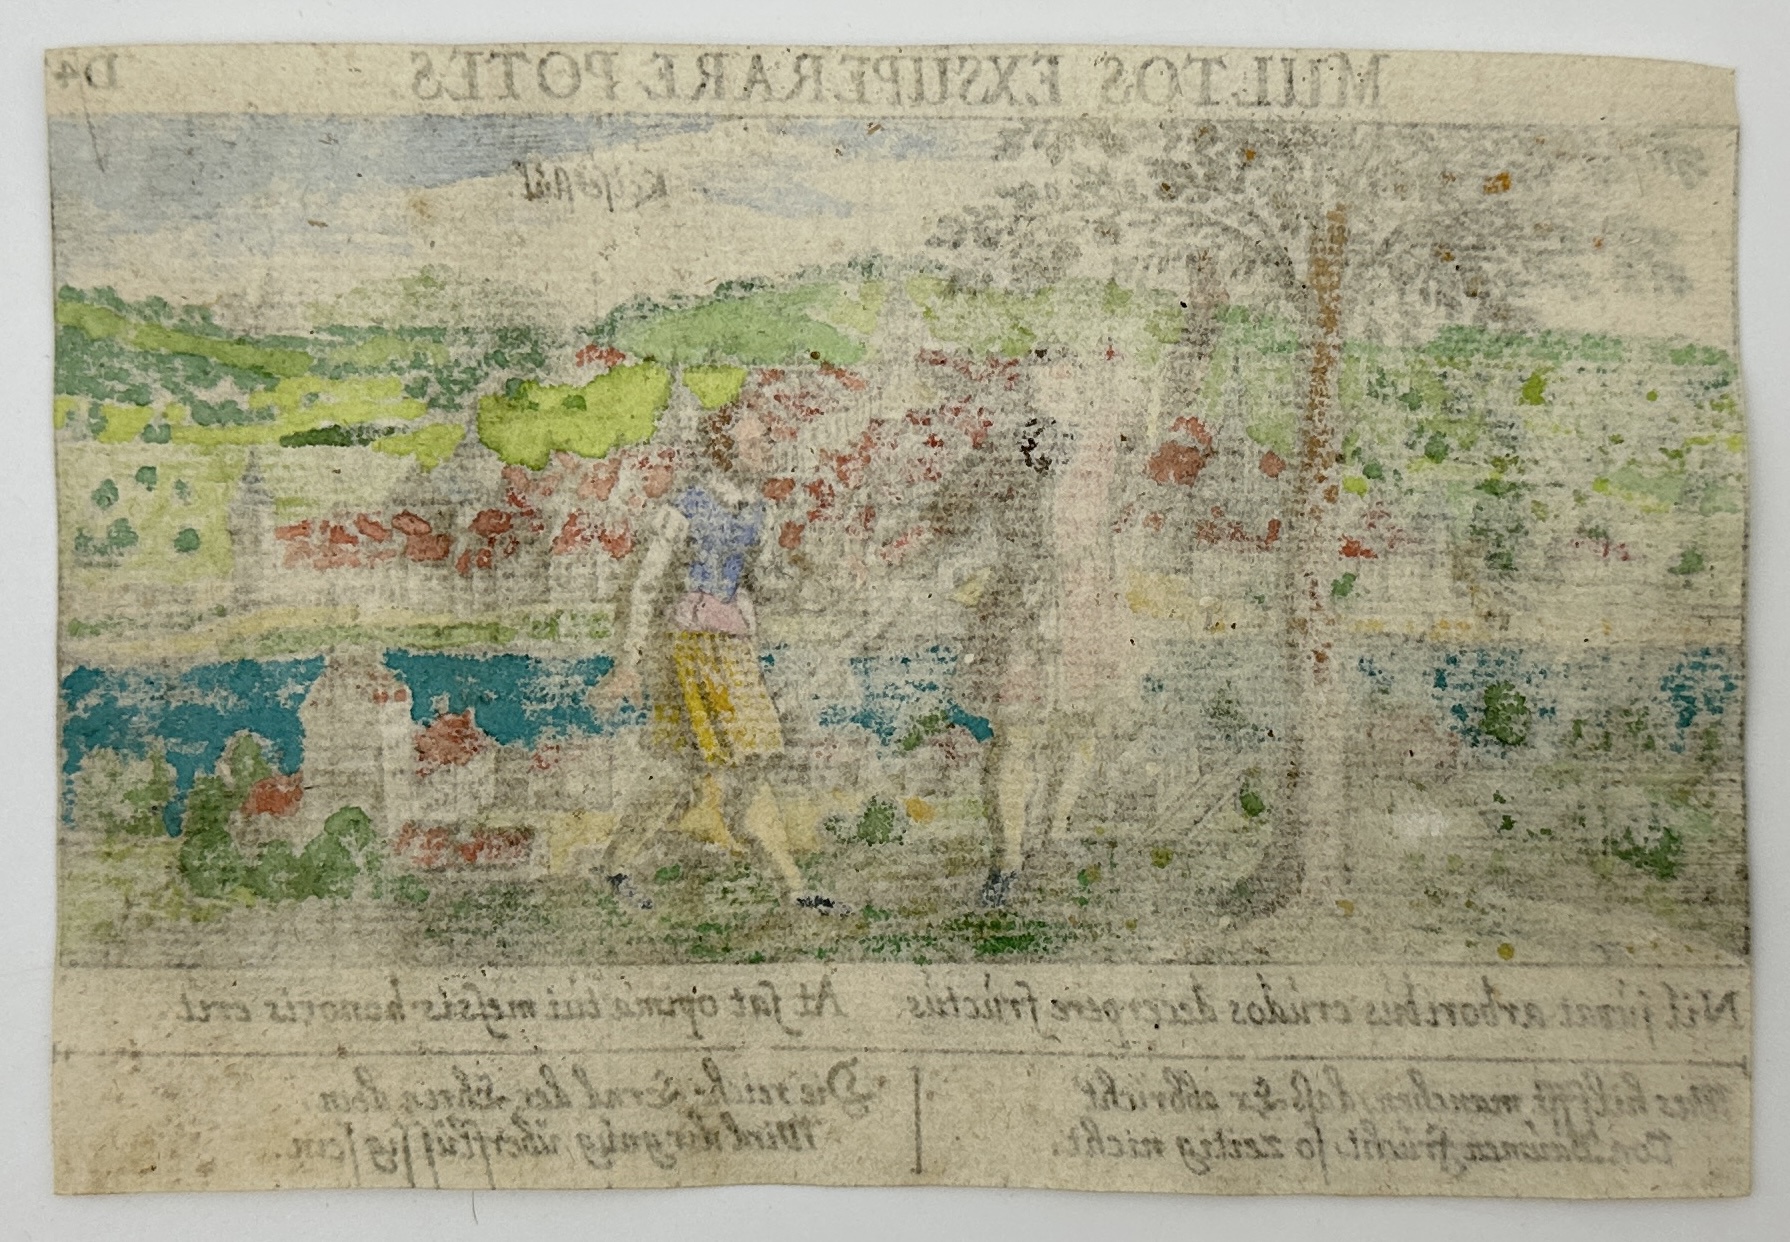 MULTOS EXSUPERARE POTES.
D4
Nil juvat arboribus crudos decerpere fructus
At sat opima tui messis honoris erit.
Was hilfft manchen, daß Er abbricht
Von Bäumen frücht, so zeitig nicht.
Die reiche Ernd der Ehren dein,
Wird dir gnug überflüssig sein.